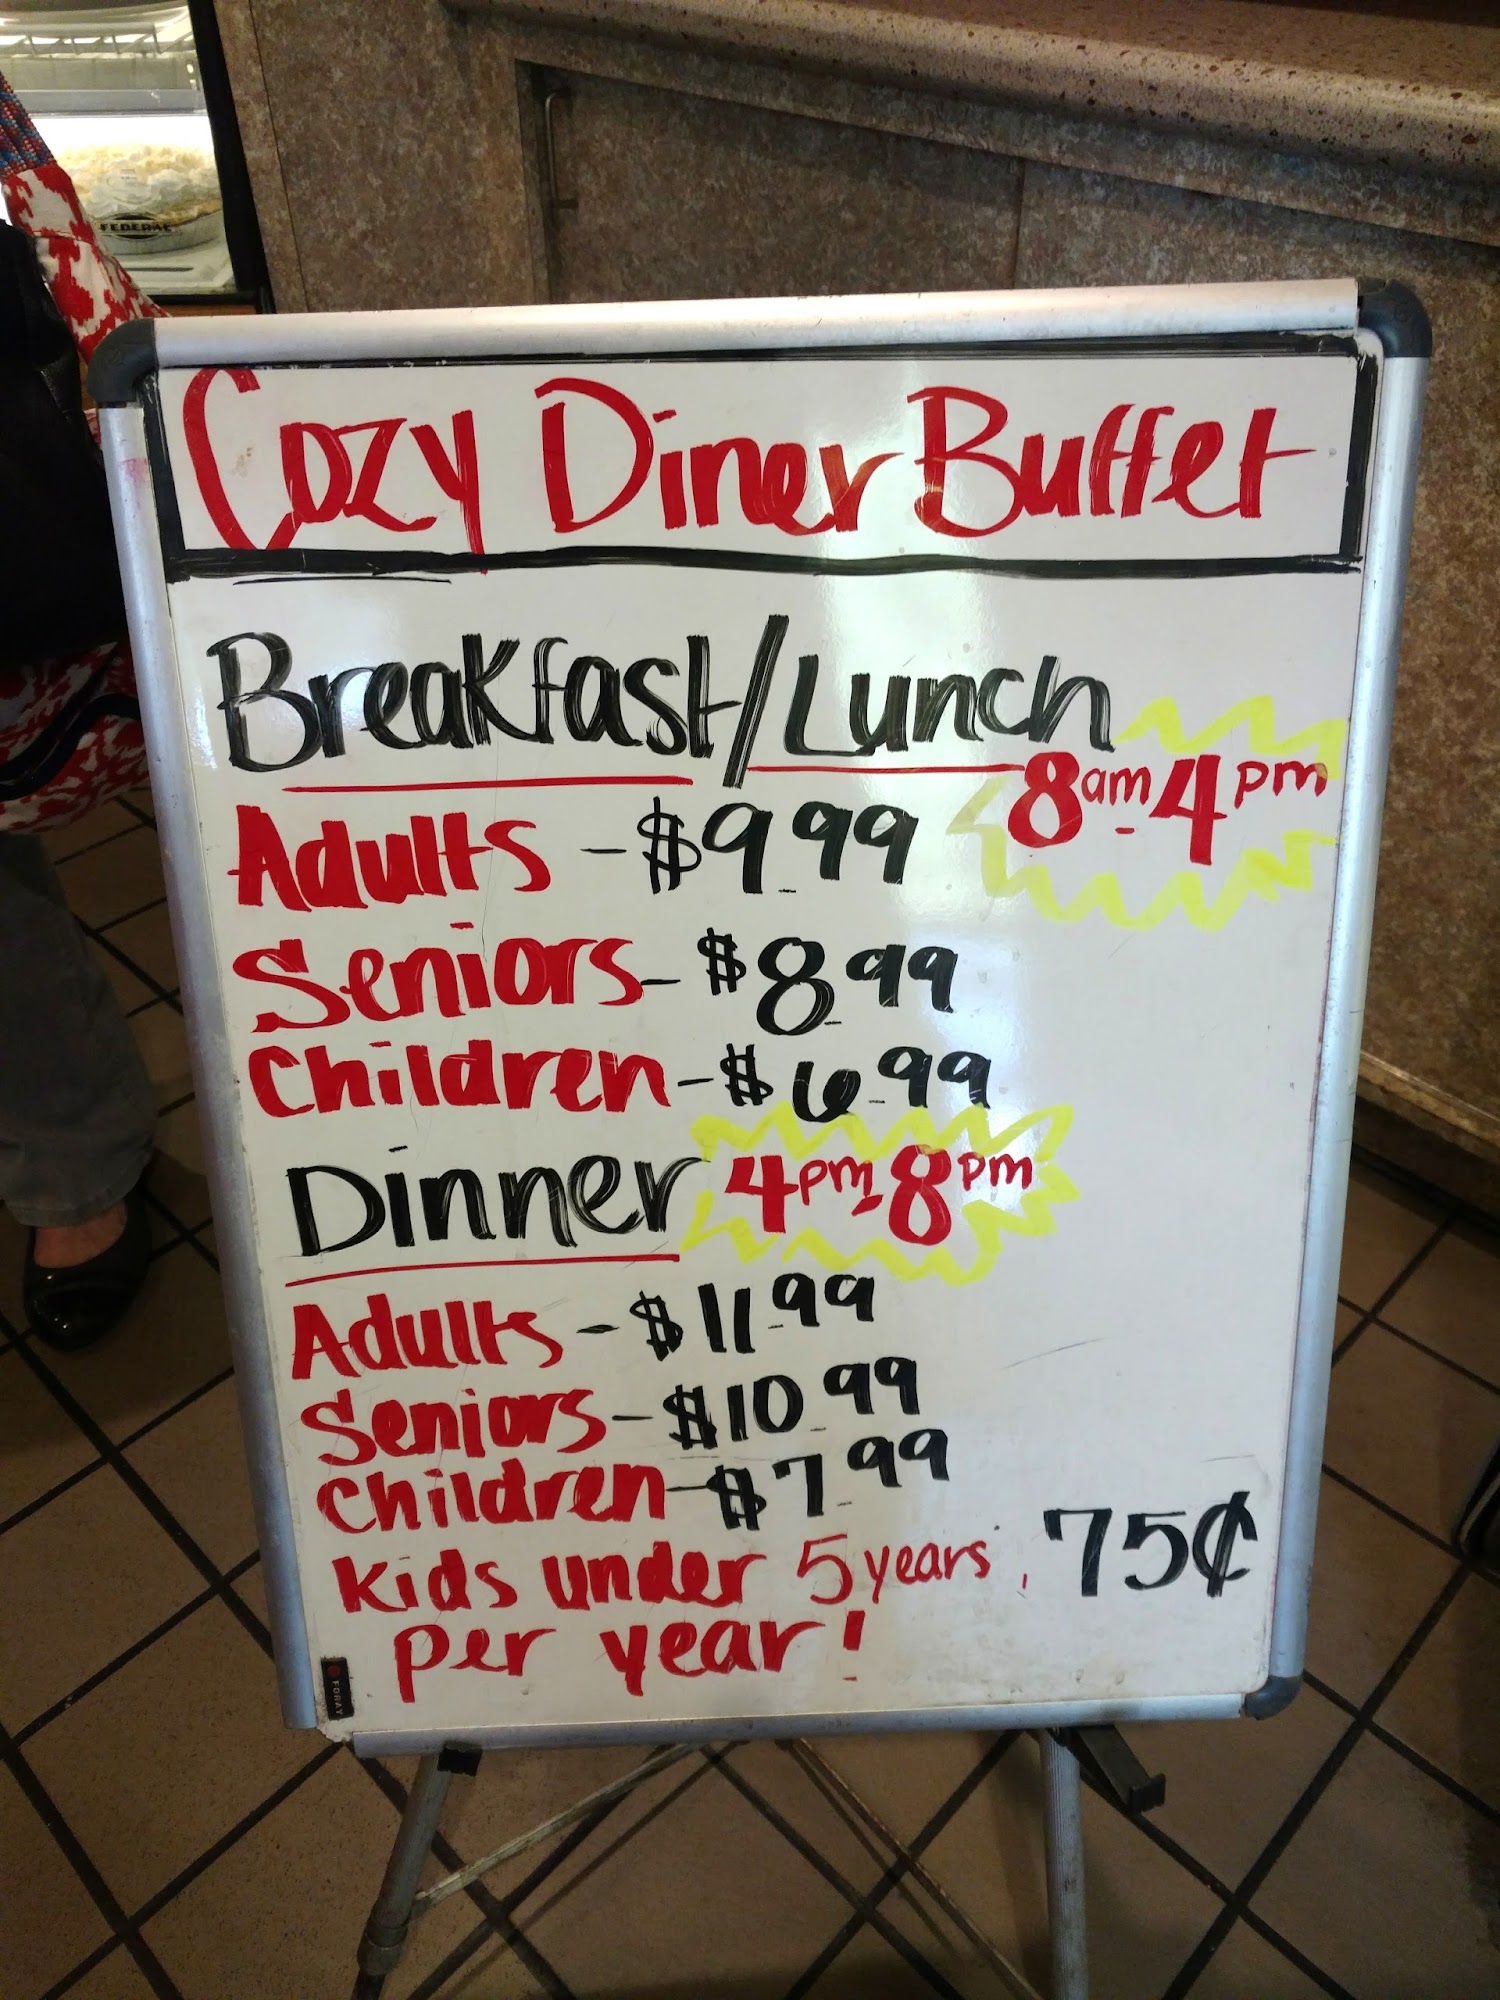 FEDERAL
Cozy Diner Buffet
Breakfast/Lunch
8am-4pm
Adults - $9.99
Seniors - $8.99
Children - $6.99
Dinner 4pm-8pm
Adults - $11.99
Seniors - $10.99
Children - $7.99
Kids under 5 years, 75¢
per year!
FORAY